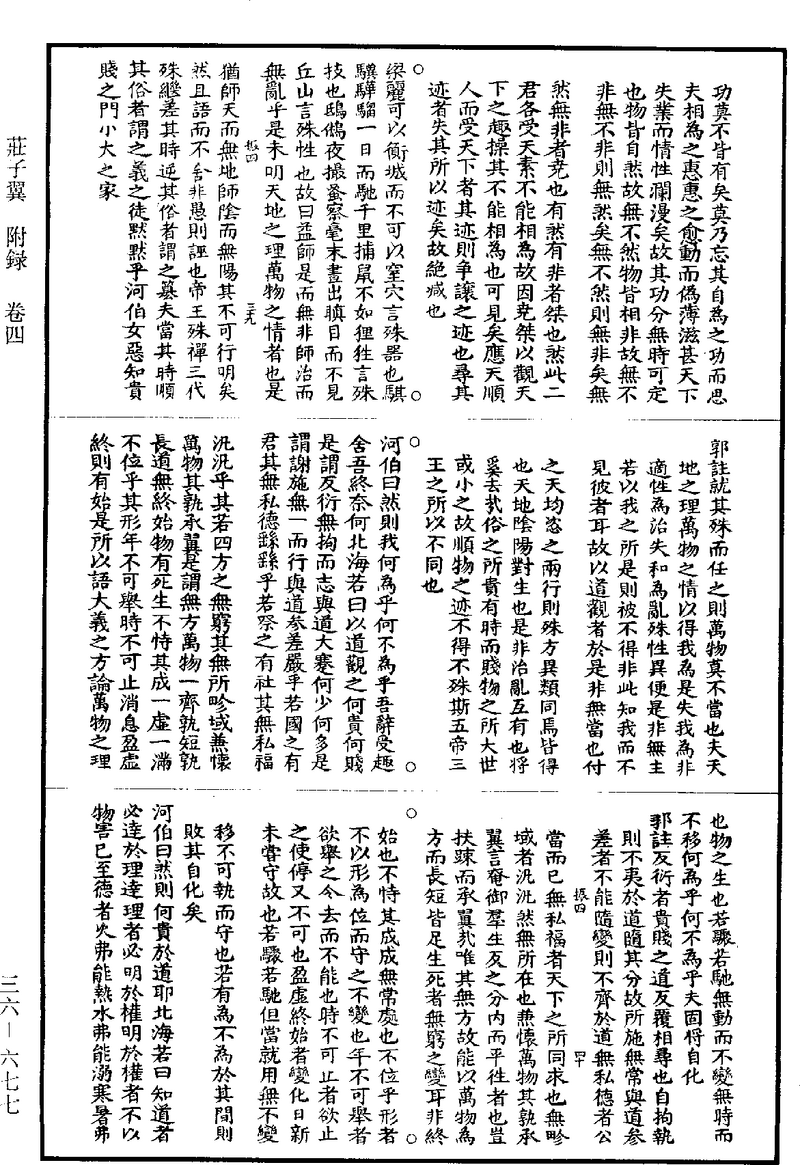 莊子翼　附録　卷四
三六—六七七
功莫不皆有矣莫乃忘其自為之功而思
夫相為之惠惠之愈動而偽薄滋甚天下
失業而情性瀾漫矣故其功分無時可定
也物皆自然故無不然物皆相非故無不
非無不非則無然矣無不然則無非矣無
然無非者堯也有然有非者桀也然此二
君各受天素不能相為故因堯桀以觀天
下之趣操其不能相為也可見矣應天順
人而受天下者其迹則争讓之迹也尋其
迹者失其所以迹矣故絶滅也
梁麗可以衝城而不可以窒穴言殊器也騏
驥驊騮一日而馳千里捕鼠不如狸狌言殊
技也鴟鵂夜撮蚤察毫末晝出瞋目而不見
丘山言殊性也故曰蓋師是而無非師治而
無亂乎是未明天地之理萬物之情者也是
振四
三九
猶師天而無地師陰而無陽其不可行明矣
然且語而不舍非愚則誣也帝王殊禪三代
殊繼差其時逆其俗者謂之簒夫當其時順
其俗者謂之義之徒黙黙乎河伯女惡知貴
賤之門小大之家
郭註就其殊而任之則萬物莫不當也夫天
地之理萬物之情以得我為是失我為非
適性為治失和為亂殊性異便是非無主
若以我之所是則彼不得非此知我而不
見彼者耳故以道觀者於是非無當也付
之天均恣之兩行則殊方異類同焉皆得
也天地陰陽對生也是非治亂互有也將
奚去㢤俗之所貴有時而賤物之所大世
或小之故順物之迹不得不殊斯五帝三
王之所以不同也
河伯曰然則我何為乎何不為乎吾辭受趣
舍吾終奈何北海若曰以道觀之何貴何賤
是謂反衍無拘而志與道大蹇何少何多是
謂謝施無一而行與道參差嚴乎若國之有
君其無私德繇繇乎若祭之有社其無私福
汎汎乎其若四方之無窮其無所畛域兼懷
萬物其孰承翼是謂無方萬物一齊孰短孰
長道無終始物有死生不恃其成一虚一滿
不位乎其形年不可舉時不可止消息盈虚
終則有始是所以語大義之方論萬物之理
也物之生也若驟若馳無動而不變無時而
不移何為乎何不為乎夫固將自化
郭註反衍者貴賤之道反覆相尋也自拘執
則不夷於道隨其分故所施無常與道參
差者不能隨變則不齊於道無私德者公
振四
四十
當而已無私福者天下之所同求也無畛
域者汎汎然無所在也兼懷萬物其孰承
翼言奄御羣生反之分内而平徃者也豈
扶踈而承翼㢤唯其無方故能以萬物為
方而長短皆足生死者無窮之變耳非終
始也不恃其成成無常處也不位乎形者
不以形為位而守之不變也年不可舉者
欲舉之令去而不能也時不可止者欲止
之使停又不可也盈虚終始者變化日新
未嘗守故也若驟若馳但當就用無不變
移不可執而守也若有為不為於其間則
敗其自化矣
河伯曰然則何貴於道耶北海若曰知道者
必達於理達理者必明於權明於權者不以
物害已至德者火弗能熱水弗能溺寒暑弗